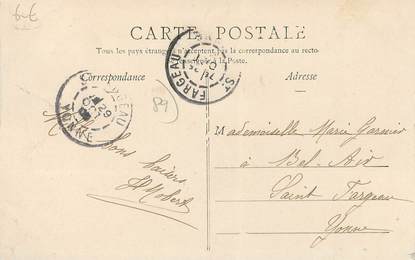 6€
CARTE POSTALE
Tous les pays étrangers n'acceptent pas la correspondance au recto-
à la Poste.
Correspondance
Adresse
ST FARGEAU
YONNE
29
89
bons baisers
Mademoiselle Marie Garnier
à Bel-Air
Saint Fargeau
Yonne